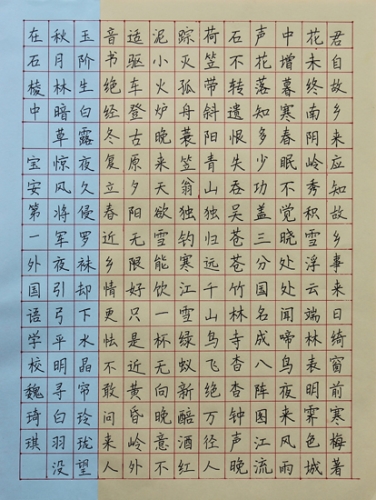 君自故乡来应知故乡事来日绮窗前寒梅著
花未终南阴岭秀积雪浮云端林表明霁色城
中增暮寒春眠不觉晓处处闻啼鸟夜来风雨
声花落知多少功盖三分国名成八阵图江流
石不转遗恨失吞吴苍苍竹林寺杳杳钟声晚
荷笠带斜阳青山独归远千山鸟飞绝万径人
踪灭孤舟蓑笠翁独钓寒江雪绿蚁新醅酒红
泥小火炉晚来天欲雪能饮一杯无向晚意不
适驱车登古原夕阳无限好只是近黄昏岭外
音书绝经冬复立春近乡情更怯不敢问来人
玉阶生白露夜久侵罗袜却下水晶帘玲珑望
秋月林暗草惊风将军夜引弓平明寻白羽没
在石棱中 宝安第一外国语学校魏琦琪